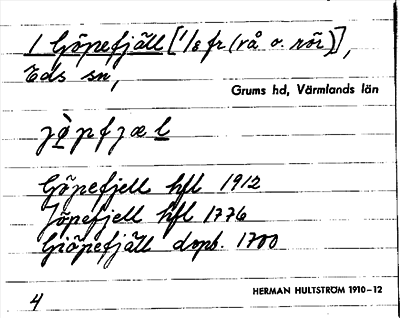 1 Göpefjäll [1/8 fr (rå o. rör)],
Eds sn,
Grums hd, Värmlands län
jö̀pfjæl
Göpefjell hfl 1912
Jöpefjell hfl 1776
Giöpefjäll dopb. 1700
HERMAN HULTSTRÖM 1910–12
4